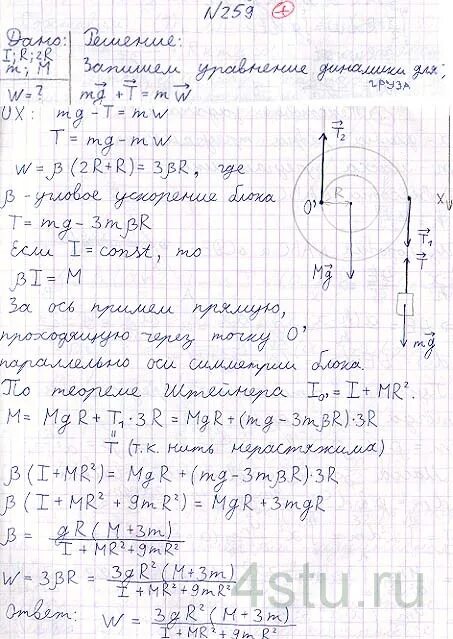 N259 +
Дано: Решение:
I; R; 2R Запишем уравнение динамики для
m; M ГРУЗА
W = ? m\vec{g} + \vec{T} = m\vec{w}
OX: mg - T = mw
T = mg - mw
w = β(2R+R) = 3βR, где
β - угловое ускорение блока
T = mg - 3mβR
Если I = const, то
βI = M
За ось примем прямую,
проходящую через точку O'
параллельно оси симметрии блока.
По теореме Штейнера I_{O'} = I + MR².
M = MgR + T₁·3R = MgR + (mg - 3mβR)·3R
T (т.к. нить нерастяжима)
β(I+MR²) = MgR + (mg - 3mβR)·3R
β(I + MR² + 9mR²) = MgR + 3mgR
β = gR(M+3m) / I + MR² + 9mR²
W = 3βR = 3gR²(M+3m) / I + MR² + 9mR²
Ответ: W = 3gR²(M+3m) / I + MR² + 9mR²
\vec{T}₂
R
O'
X
\vec{T}₁
\vec{T}
M\vec{g}
m\vec{g}
4stu.ru